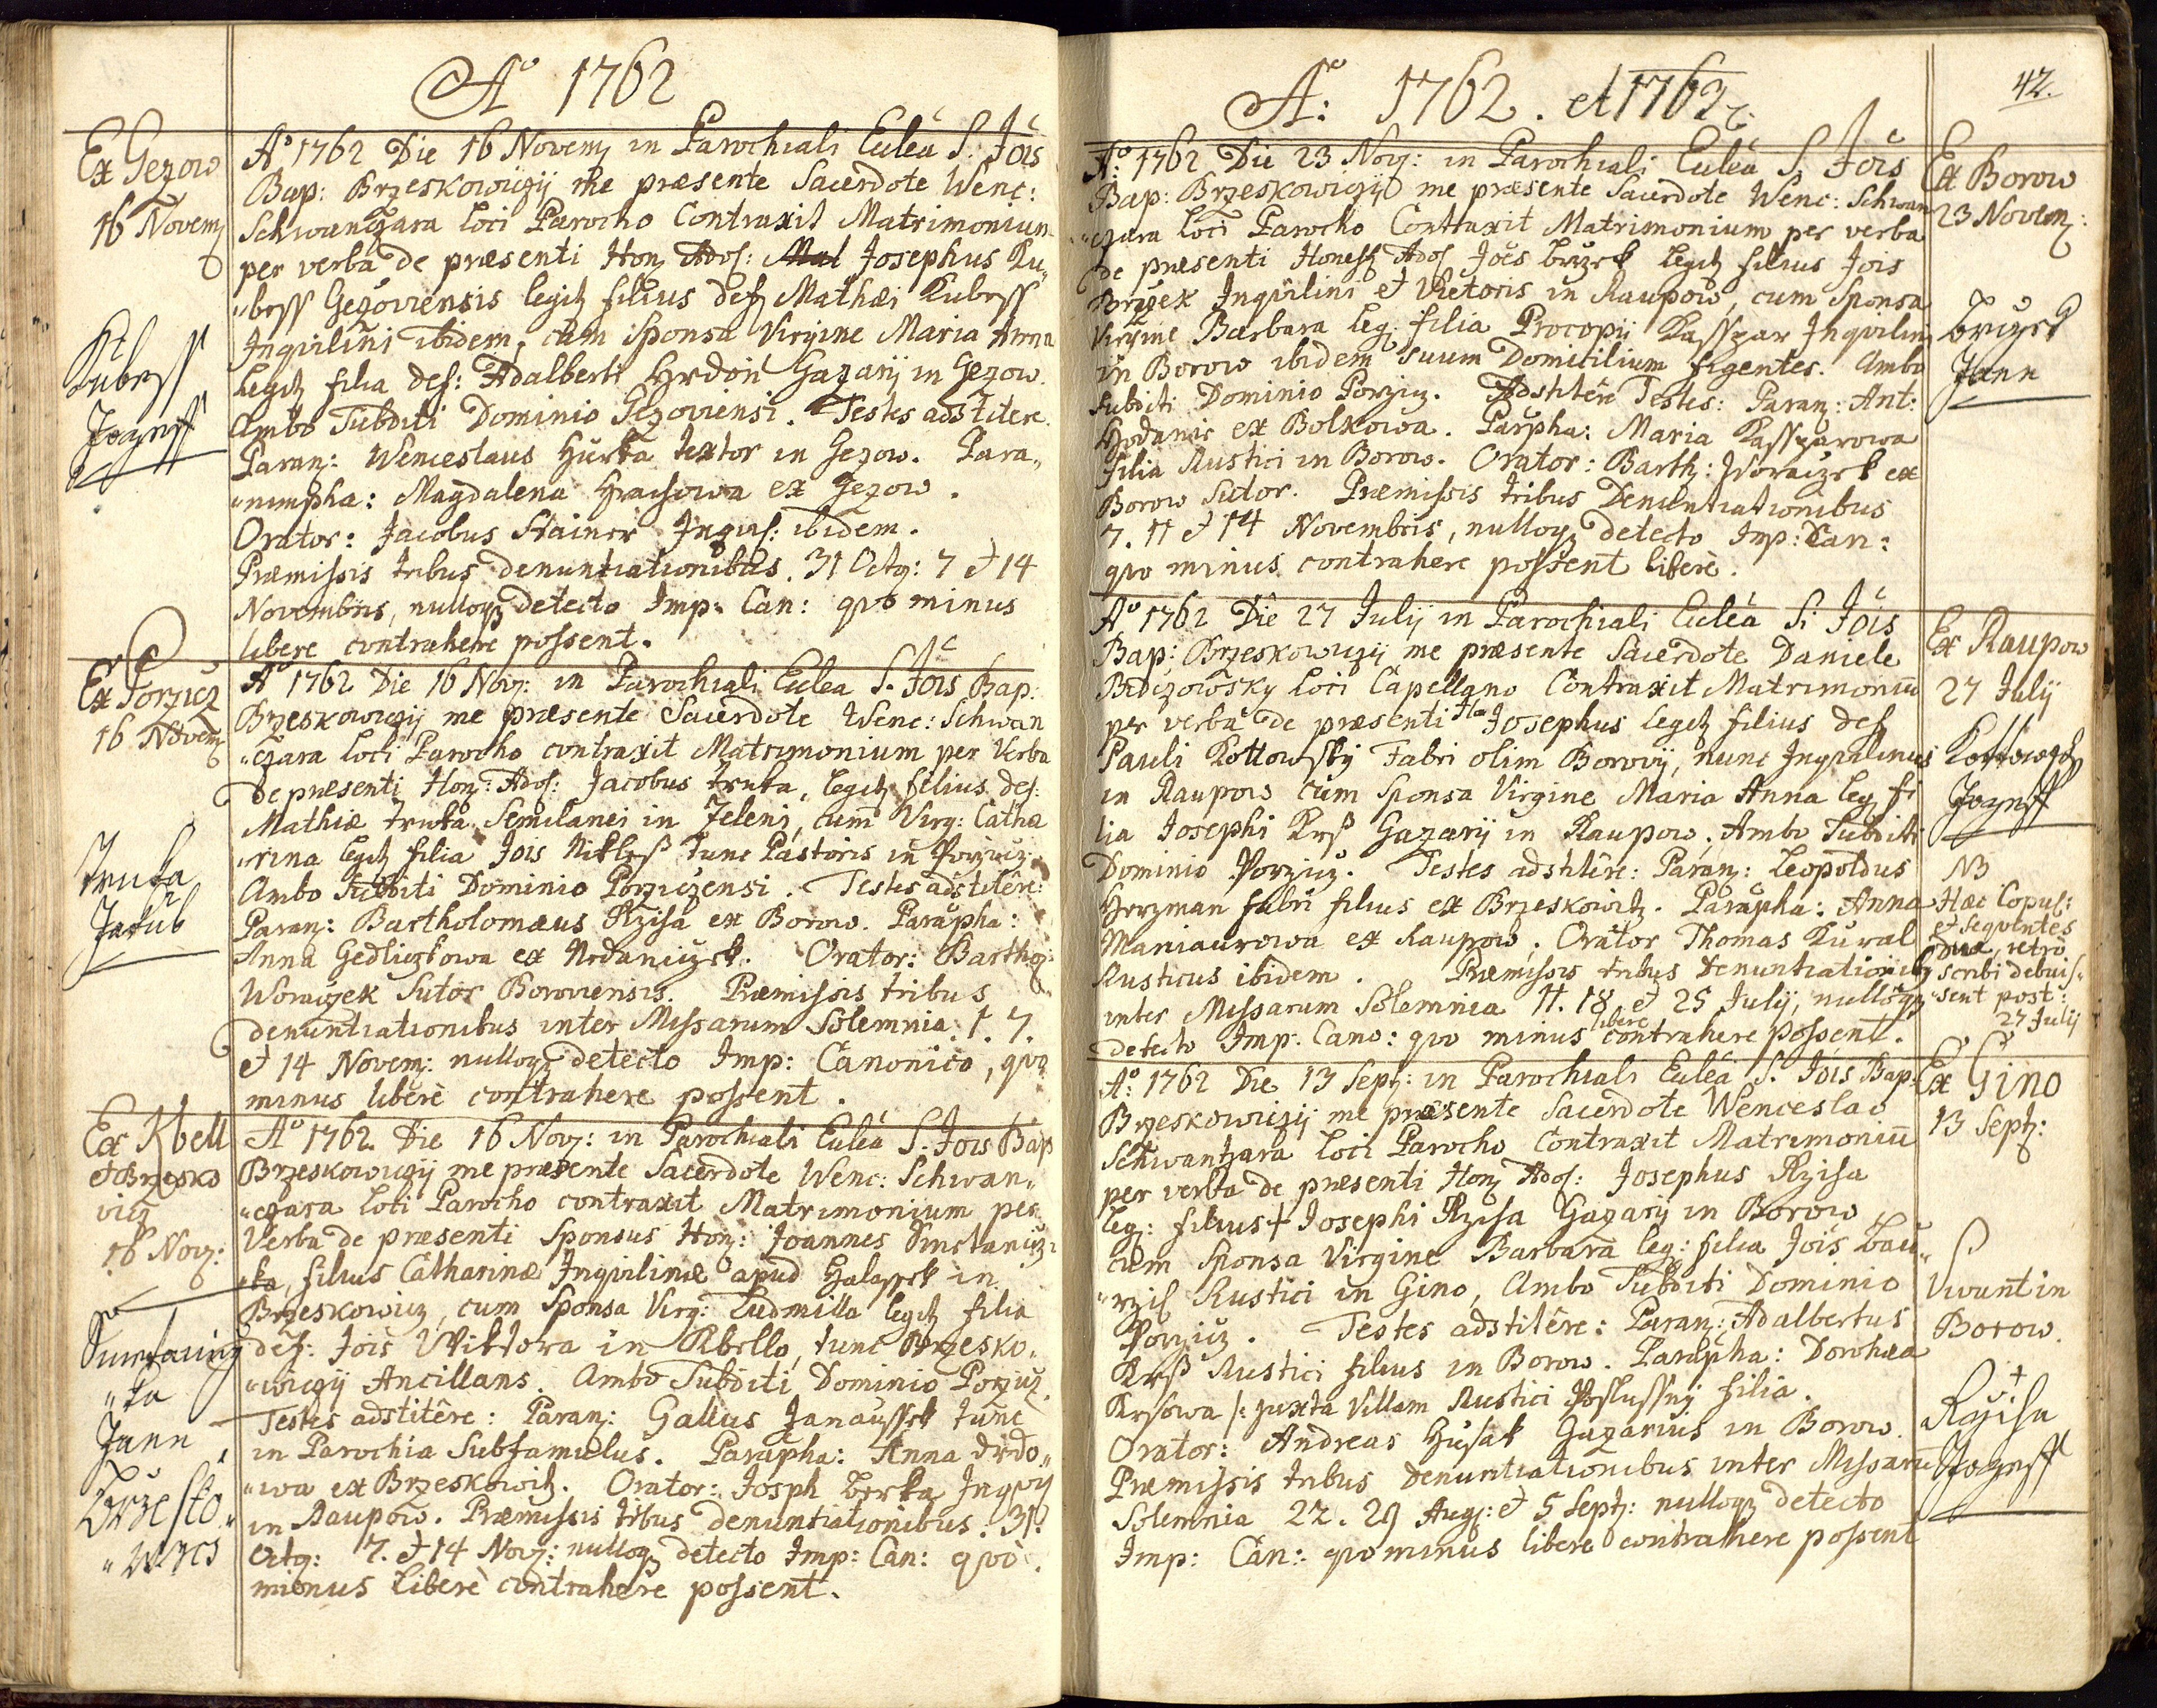 Aº 1762
Ex Gezow
16 Novem
Kubess
Jozeff
Aº 1762 Die 16 Novem in Parochiali Eccleâ S. Jois
Bap: Brzeskowiczij me præsente Sacerdote Wenc:
Schwanczara loci Parocho Contraxit Matrimonium
per verba de præsenti Hon Ados: Josephus Ku„
„bess Gezoviensis legit filius def Mathæi Kubess
Inquilini ibidem, cum Sponsa Virgine Maria Anna
Legit filia def: Adalberti Hrdon Gazarij in Gezow.
Ambo Subditi Dominio Gezoviensi. Testes adstitere
Paran: Wenceslaus Hurka textor in Gezow. Para„
„nympha: Magdalena Hrachowa ex Gezow.
Orator: Jacobus Stainer Inquil: ibidem.
Præmissis tribus denuntiationibus. 31 Octo: 7 et 14
Novembris, nulloq detecto Imp: Can: quo minus
libere contrahere possent.
Ex Porzicz
16 Novem
Truka
Jakub
Aº 1762 Die 16 Nov: in Parochiali Ecclea S. Jois Bap:
Brzeskowiczij me præsente Sacerdote Wenc: Schwan
„czara loci Parocho contraxit Matrimonium per Verba
de præsenti Hon: Ados: Jacobus Truka, legit filius def:
Mathiæ Truka Semilanei in Jeleni, cum Virg: Catha
„rina legit filia Jois Nikless tunc Pastoris in Porzicz
Ambo Subditi Dominio Porziczensi. Testes adstitêre:
Paran: Bartholomæus Rziha ex Borow. Parãpha:
Anna Gedliczkowa ex Nedaniczek. Orator: Barthol:
Woraczek Sutor Boroviensis. Præmissis tribus
denuntiationibus inter Missarum Solemnia. 1. 7.
et 14 Novem: nulloq detecto Imp: Canonico, quo
minus liberè contrahere possent.
Ex Kbell
et Brzesko
vicz
16 Nov:
Smetanicz
„ka
Jann
z Brzesko„
„wicz
Aº 1762 Die 16 Nov: in Parochiali Eccleâ S. Jois Bap
Brzeskowiczij me præsente Sacerdote Wenc: Schwan„
„czara loci Parocho contraxit Matrimonium per
Verba de præsenti Sponsus Hon: Joannes Smetanicz„
„ka, filius Catharinæ Inquilinæ apud Halassek in
Brzeskowicz, cum Sponsa Virg: Ludmilla legit filia
def: Jois Wiktora in Kbello, tunc Brzesko„
„wiczij Ancillans. Ambo Subditi Dominio Porzicz.
Testes adstitêre: Paran: Gallus Janaussek tunc
in Parochia Subfamulus. Parãpha: Anna Drdo„
„wa ex Brzeskowitz. Orator: Joseph Berka Inquil
in Raupow. Præmissis tribus denuntiationibus. 31.
Octo: 7. et 14 Nov: nulloq detecto Imp: Can: quò
minus liberè contrahere possent.
42.
Aº: 1762. et 1763
Ex Borow
23 Novem:
Bruzek
Jann
Aº: 1762 Die 23 Nov: in Parochiali Eccleâ S. Jois
Bap: Brzeskowiczij me præsente Sacerdote Wenc: Schwan
„czara loci Parocho Contraxit Matrimonium per verba
de præsenti Honest Ados Joes Bruzek legit filius Jois
Bruzek Inquilini et Vietoris in Raupow, cum Sponsa
Virgine Barbara leg: filia Procopij Kasspar Inquilini
in Borow ibidem suum Domicilium figentes. Ambo
subditi Dominio Porzicz. Adstitêre Testes: Paran: Ant:
Hodanic ex Bolkowa. Parãpha: Maria Kassparowa
filia Rustici in Borow. Orator: Barth: Woraczek ex
Borow Sutor. Præmissis tribus Denuntiationibus
7. 11 et 14 Novembris, nulloq detecto Imp: Can:
quo minus contrahere possent liberè.
Ex Raupow
27 Julij
Kottowsky
Jozeff
NB
Hæc Copul:
et sequentes
duæ, retro
scribi debuis„
„sent post:
27 Julij
Aº 1762 Die 27 Julij in Parochiali Eccleâ S: Jois
Bap: Brzeskowiczij me præsente Sacerdote Daniele
Brdiczowsky loci Capellano Contraxit Matrimoniũ
per verba de præsenti Hon Josephus legit filius def
Pauli Kottowsky Fabri olim Borovij, nunc Inquilinus
in Raupow cum Sponsa Virgine Maria Anna leg fi
lia Josephi Krß Gazarij in Raupow. Ambo Subditi
Dominio Porzicz. Testes adstitêre: Paran: Leopoldus
Herzman fabri filius ex Brzeskowitz. Parãpha: Anna
Maniaurowa ex Raupow. Orator Thomas Kural
Rusticus ibidem. Præmissis tribus Denuntiationib
inter Missarum Solemnia 11. 18 et 25 Julij, nulloq
detecto Imp: Cano: quo minus libere contrahere possent.
Ex Gino
13 Sept:
Vivunt in
Borow.
†
Rziha
Jozeff
Aº: 1762 Die 13 Sept: in Parochiali Eccleâ S. Jois Bap:
Brzeskowiczij me præsente Sacerdote Wenceslao
Schwantzara loci Parocho Contraxit Matrimoniũ
per verba de præsenti Hon Ados: Josephus Rziha
leg: filius † Josephi Rziha Gazarij in Borow
cum Sponsa Virgine Barbara leg: filia Jois Bau„
„rzis Rustici in Gino, Ambo Subditi Dominio
Porzicz. Testes adstitêre: Paran: Adalbertus
Krß Rustici filius in Borow. Parãpha: Dorothæa
Krsowa /: juxta Villam Rustici Poslussnij filia.
Orator: Andreas Husak Gazarius in Borow.
Præmissis tribus Denuntiationibus inter Missarũ
Solemnia 22. 29 Aug: et 5 Sept: nulloq detecto
Imp: Can: quominus libere contrahere possent